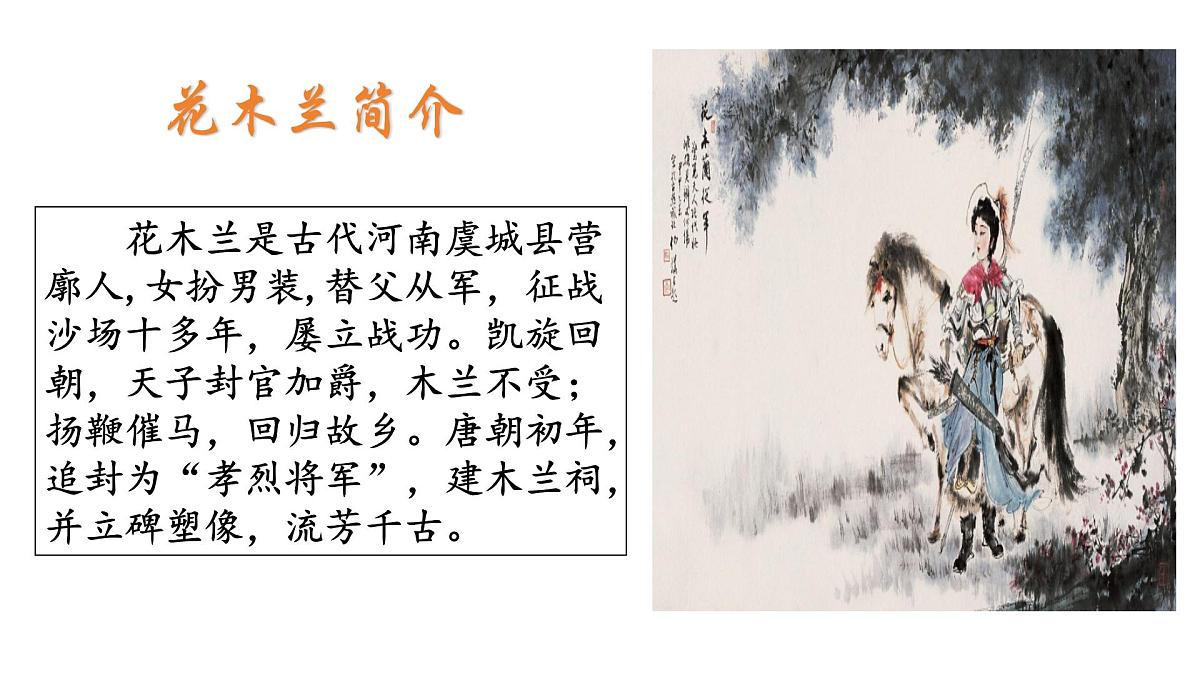 花木兰简介
花木兰是古代河南虞城县营
廓人,女扮男装,替父从军，征战
沙场十多年，屡立战功。凯旋回
朝，天子封官加爵，木兰不受；
扬鞭催马，回归故乡。唐朝初年，
追封为“孝烈将军”，建木兰祠，
并立碑塑像，流芳千古。
花木蘭從軍